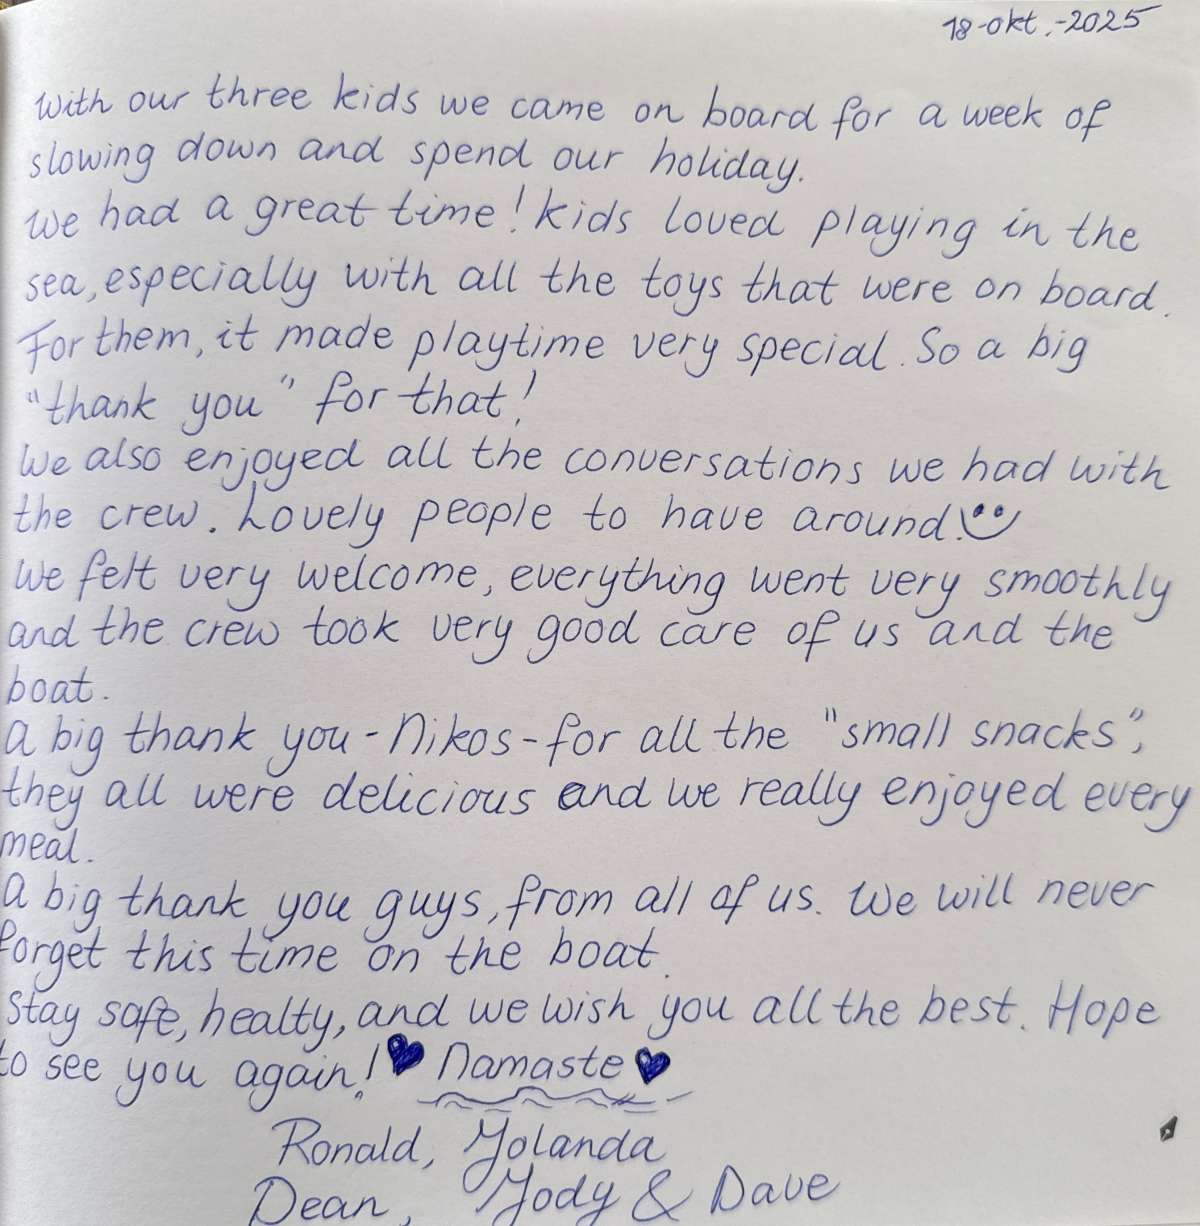 18-okt.-2025
With our three kids we came on board for a week of
slowing down and spend our holiday.
We had a great time! Kids loved playing in the
sea, especially with all the toys that were on board.
For them, it made playtime very special. So a big
"thank you" for that!
We also enjoyed all the conversations we had with
the crew. Lovely people to have around!
We felt very welcome, everything went very smoothly
and the crew took very good care of us and the
boat.
A big thank you - Nikos - for all the "small snacks",
they all were delicious and we really enjoyed every
meal.
A big thank you guys, from all of us. We will never
forget this time on the boat.
Stay safe, healty, and we wish you all the best. Hope
to see you again! Namaste
Ronald, Yolanda
Dean, Jody & Dave